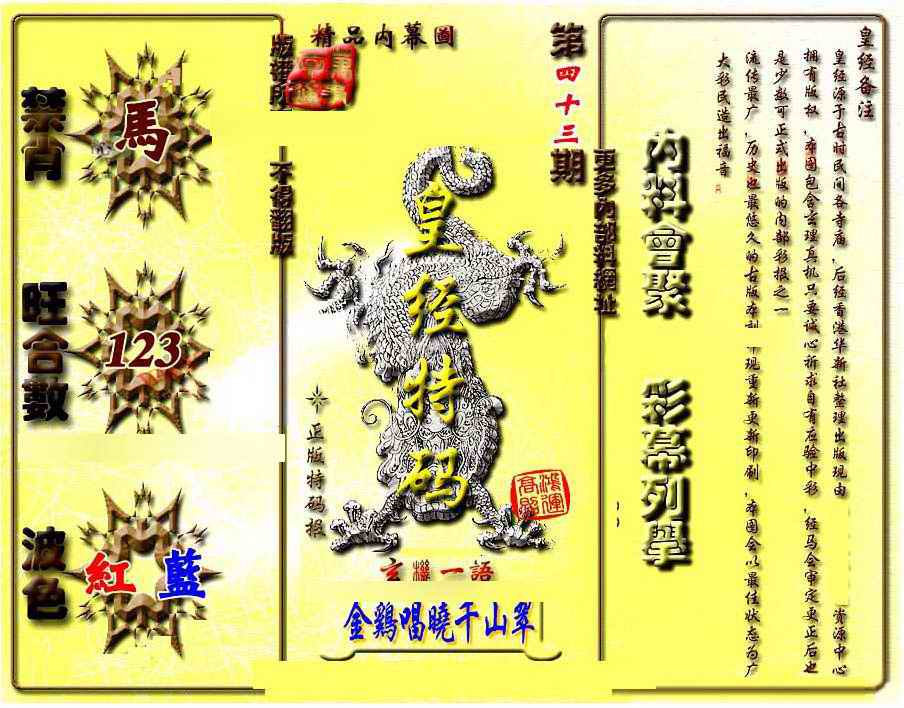 精品内幕圖
第四十三期
版權所
不得翻版
禁肖
馬
旺合數
123
波色
紅 藍
皇经特码
正版特码报
鴻運高照
玄機一語
金鷄唱曉千山翠
更多内部料網址
内料會聚
彩幕列舉
皇经备注
皇经源于古时民间各寺庙，后经香港华新社整理出版现由
资源中心
拥有版权，本图包含玄理真机只要诚心祈求自有应验中彩，经马会审定更正后也
是少数可正式出版的内部彩报之一
流传最广，历史也最悠久的古版本
现重新更新印刷，本图会以最佳状态为广
大彩民造出福音